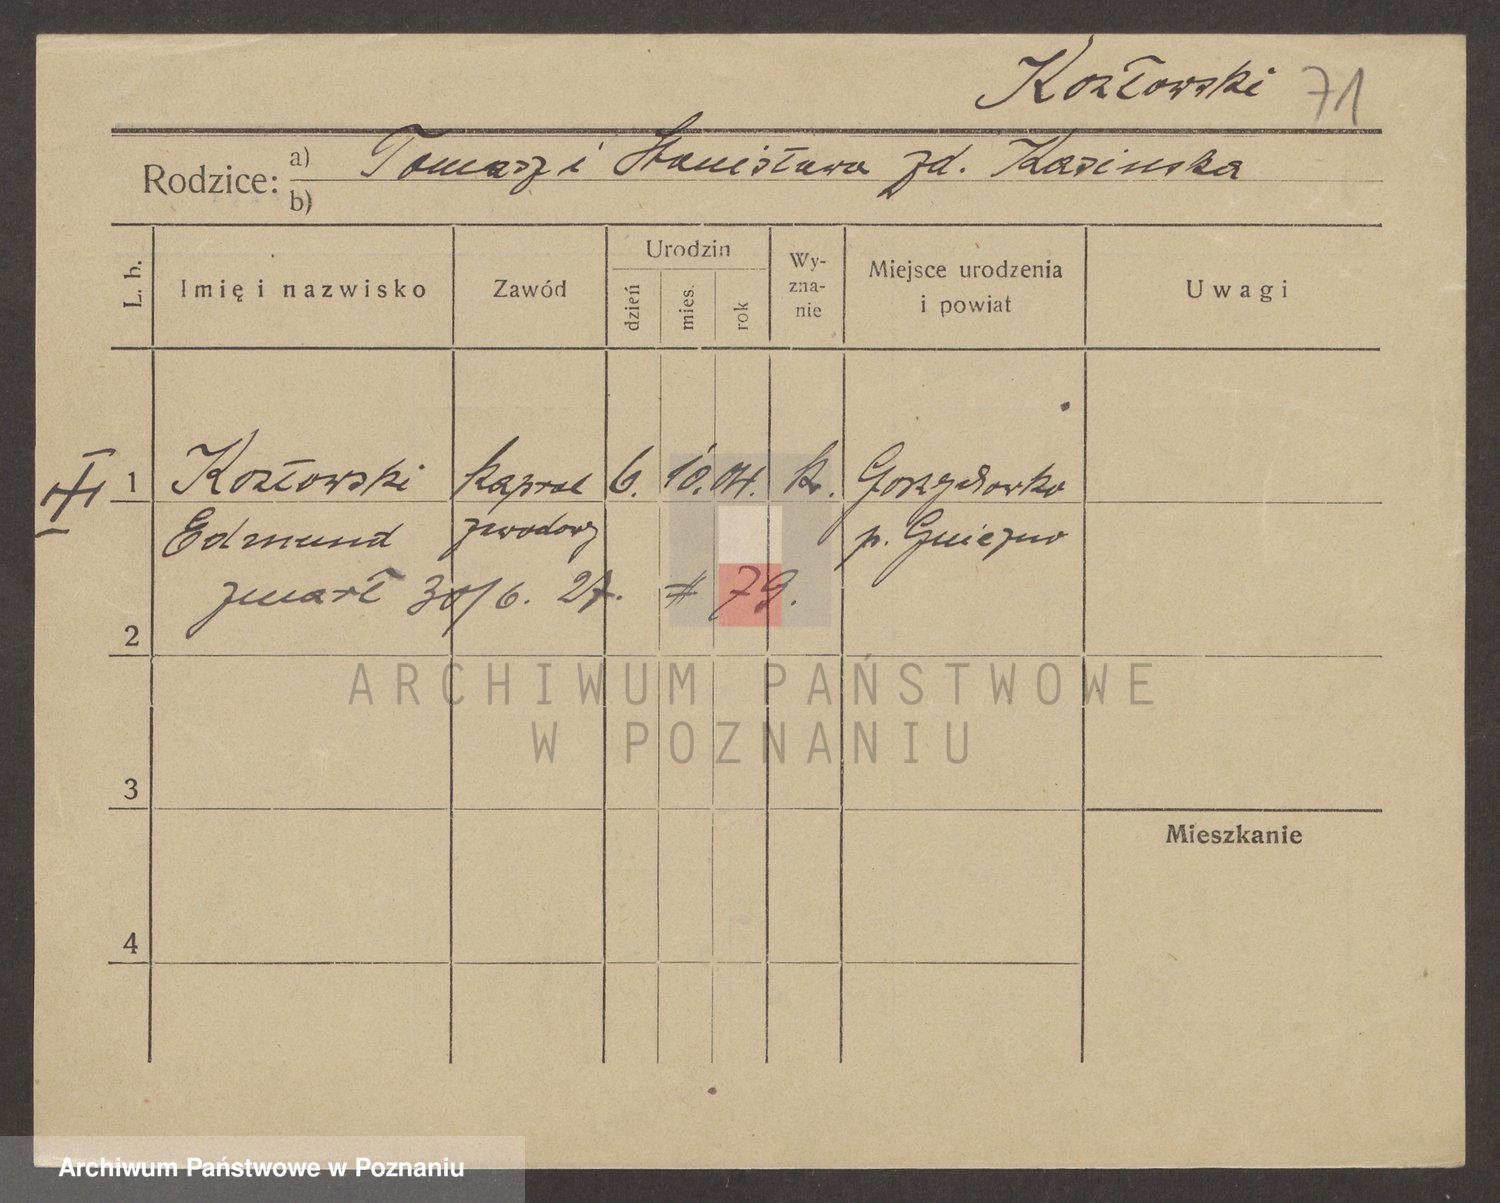 Kozłowski 71
Rodzice: a) Tomasz i Stanisława zd. Kasinska
b)
L. b. Imię i nazwisko Zawód Urodzin dzień mies. rok Wy-zna-nie Miejsce urodzenia i powiat Uwagi
1 Kozłowski kapral 6. 10. 04. k.
Edmund zawodowy p. Gniezno
zmarł 30/6. 27. # 79.
2
3
Mieszkanie
4
ARCHIWUM PAŃSTWOWE
W POZNANIU
Archiwum Państwowe w Poznaniu